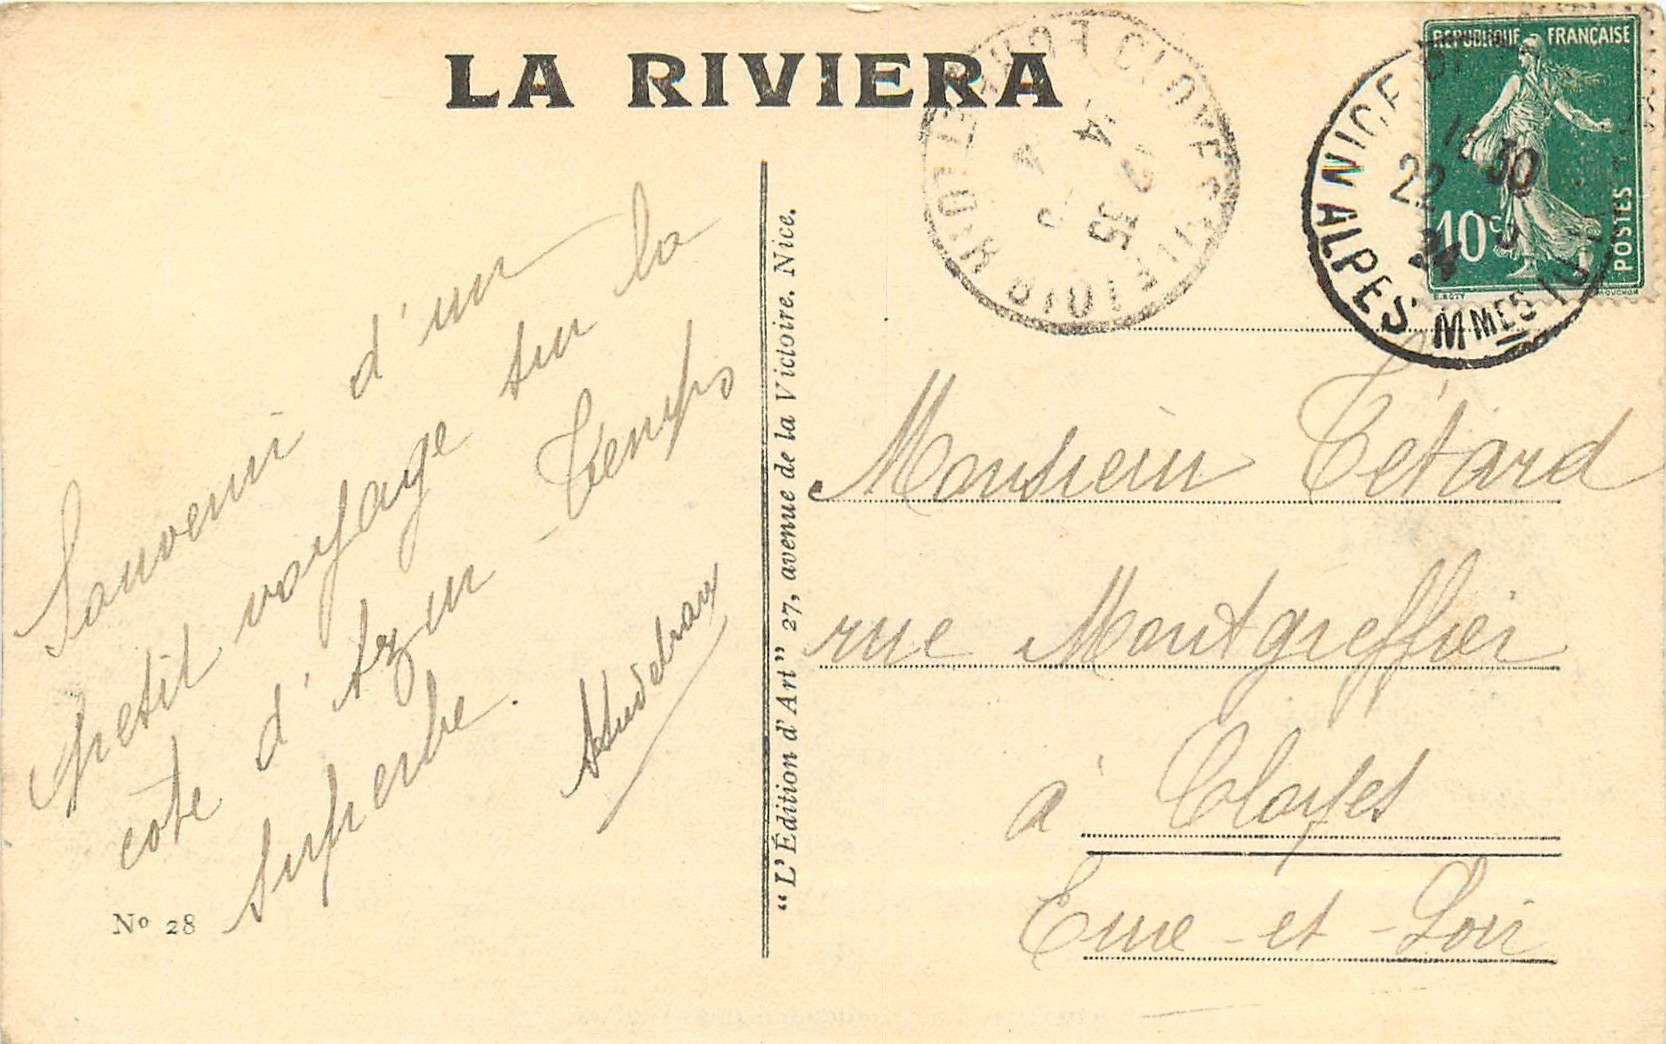 LA RIVIERA
REPUBLIQUE FRANÇAISE
10c
POSTES
NICE
ALPES MMES
22
30
Souvenir d'un
petit voyage sur la
côte d'Azur - Temps
superbe.
"L'Édition d'Art" 27, avenue de la Victoire. Nice.
Monsieur Tétard
rue Montgreffier
à Cloyes
Eure-et-Loir
No 28